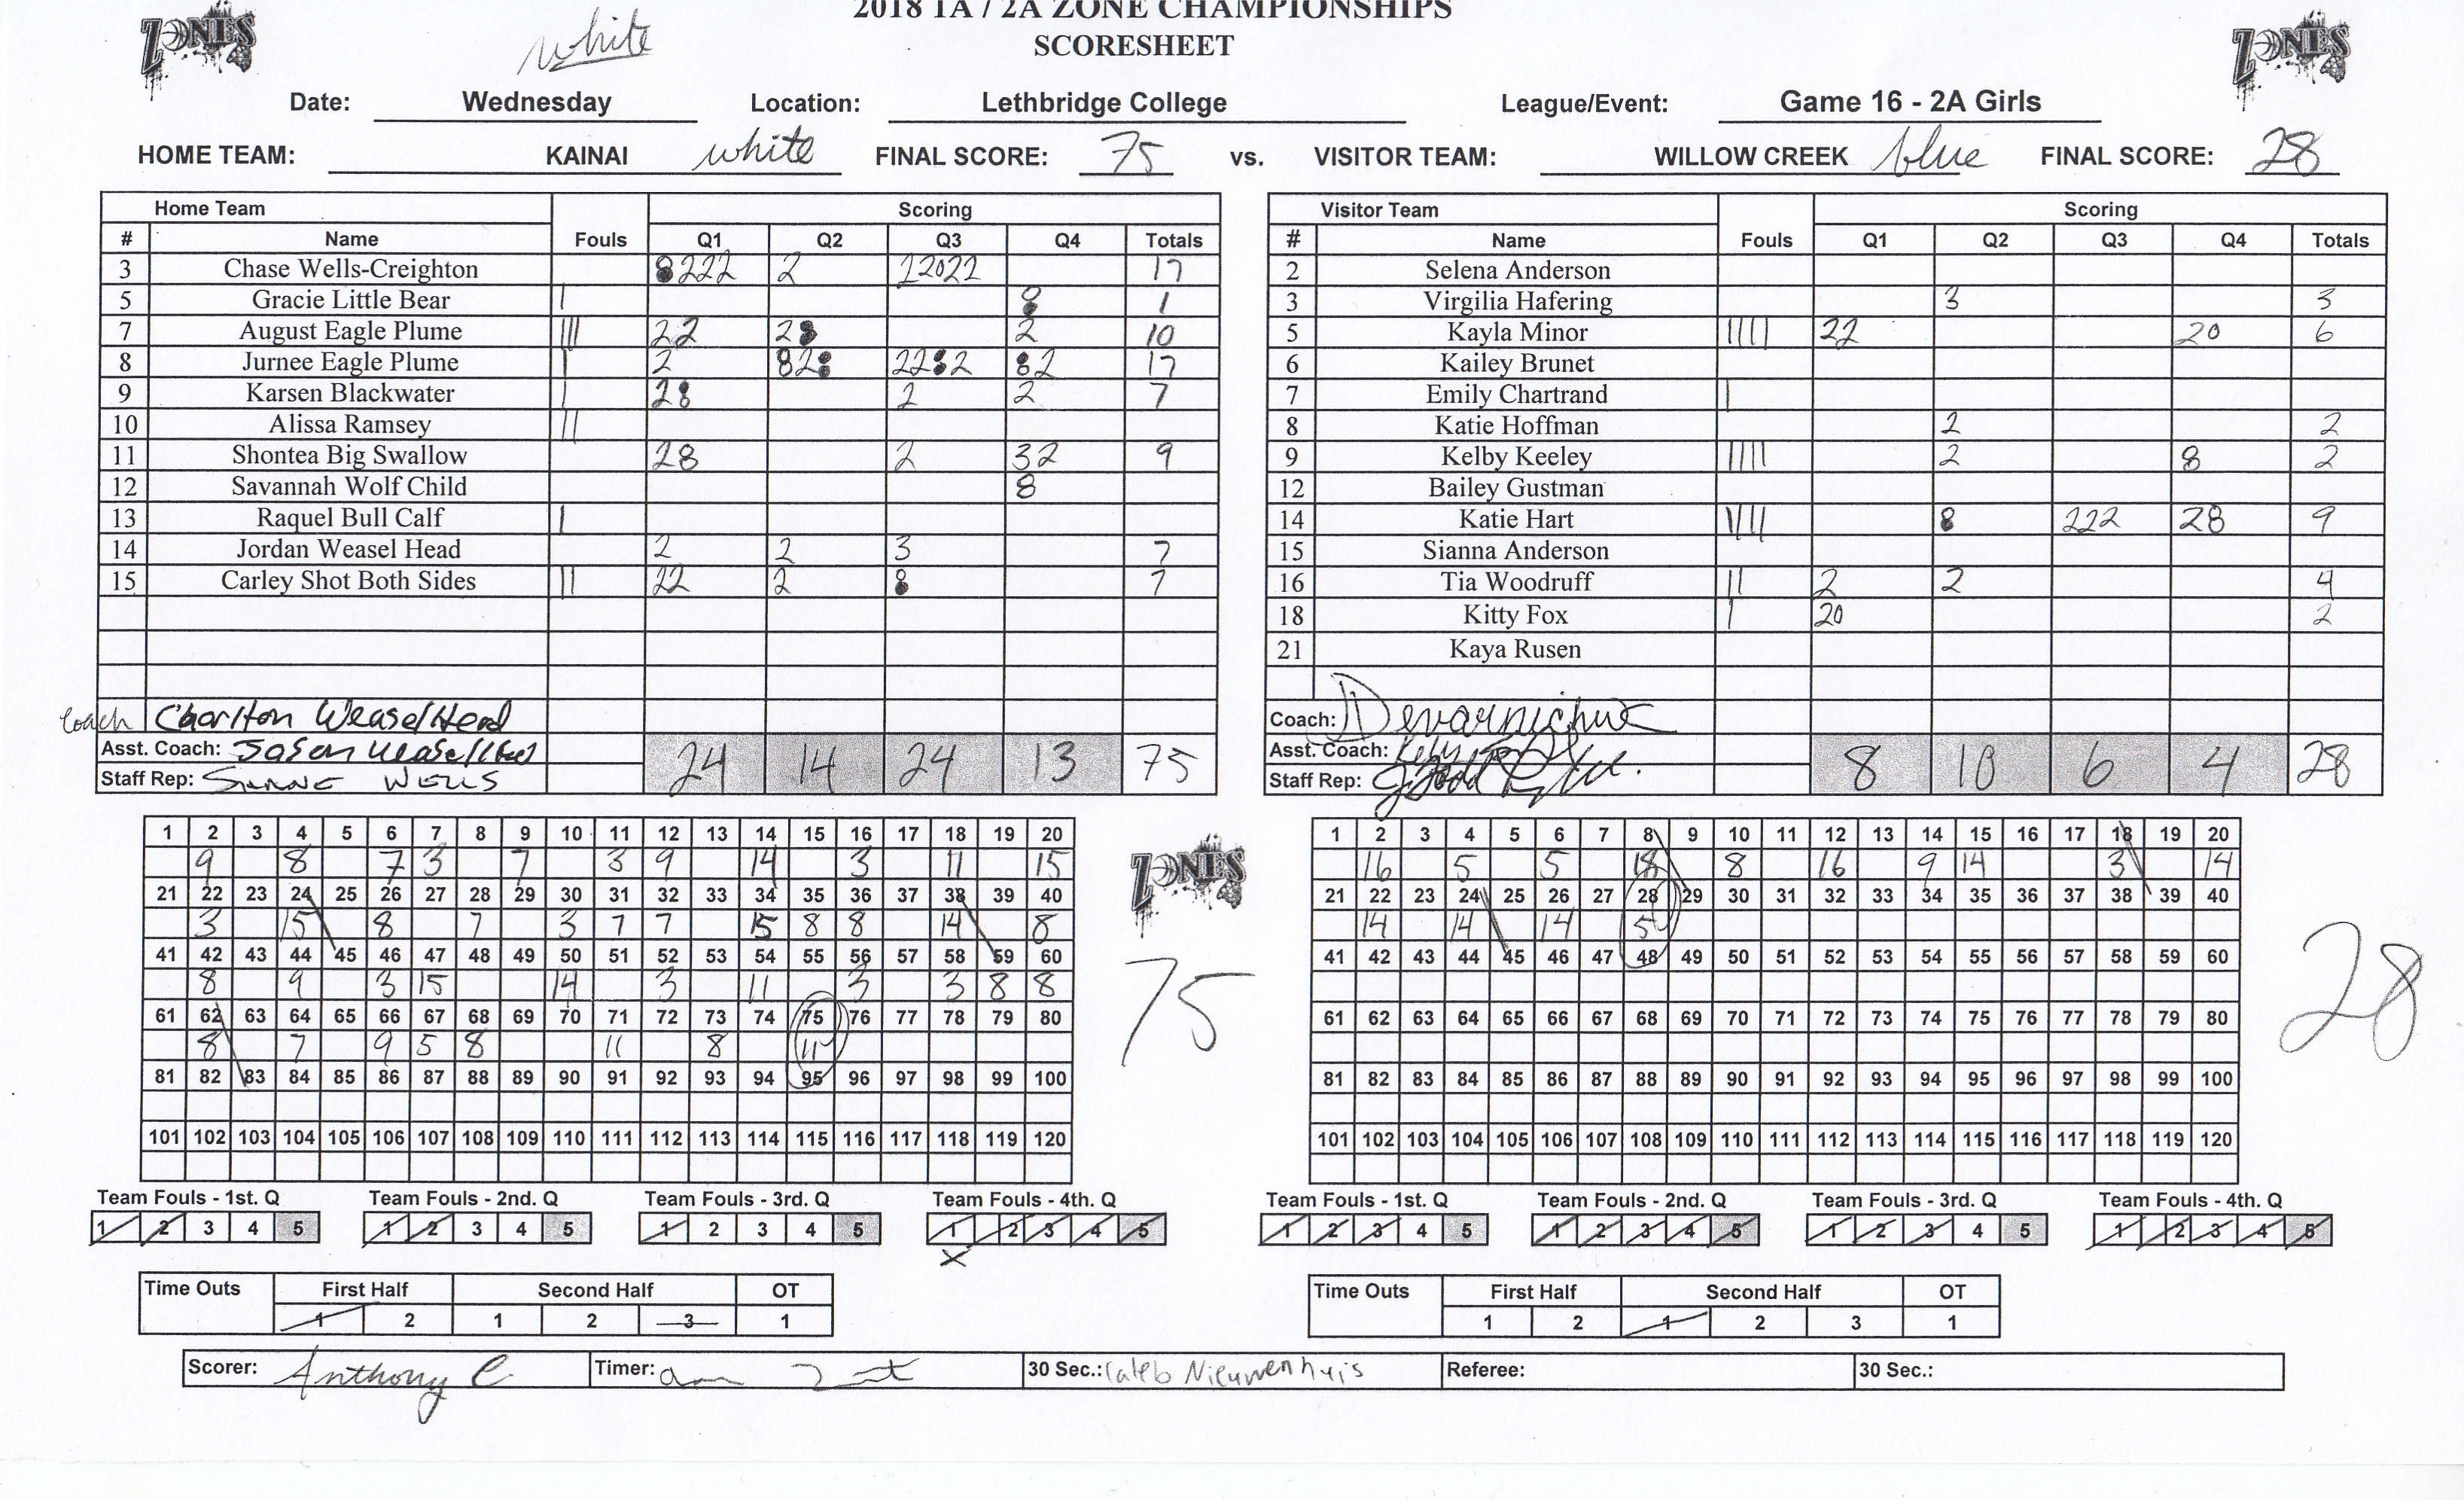 2018 1A / 2A ZONE CHAMPIONSHIPS
SCORESHEET
ZONES
white
ZONES
Date: Wednesday Location: Lethbridge College League/Event: Game 16 - 2A Girls
HOME TEAM: KAINAI white FINAL SCORE: 75 vs. VISITOR TEAM: WILLOW CREEK blue FINAL SCORE: 28
Home Team Scoring
# Name Fouls Q1 Q2 Q3 Q4 Totals
3 Chase Wells-Creighton 8222 2 22022 17
5 Gracie Little Bear | 8 1
7 August Eagle Plume ||| 22 28 2 10
8 Jurnee Eagle Plume | 2 828 2282 82 17
9 Karsen Blackwater | 28 2 2 7
10 Alissa Ramsey ||
11 Shontea Big Swallow 28 2 32 9
12 Savannah Wolf Child 8
13 Raquel Bull Calf |
14 Jordan Weasel Head 2 2 3 7
15 Carley Shot Both Sides || 22 2 8 7
Coach Charlton Weasel Head
Asst. Coach: Jason Weasel Head
Staff Rep: SHANE WELLS
24 14 24 13 75
Visitor Team Scoring
# Name Fouls Q1 Q2 Q3 Q4 Totals
2 Selena Anderson
3 Virgilia Hafering 3 3
5 Kayla Minor |||| 22 20 6
6 Kailey Brunet
7 Emily Chartrand |
8 Katie Hoffman 2 2
9 Kelby Keeley |||| 2 8 2
12 Bailey Gustman
14 Katie Hart |||| 8 222 28 9
15 Sianna Anderson
16 Tia Woodruff || 2 2 4
18 Kitty Fox | 20 2
21 Kaya Rusen
Coach:
Asst. Coach:
Staff Rep:
8 10 6 4 28
1 2 3 4 5 6 7 8 9 10 11 12 13 14 15 16 17 18 19 20
9 8 7 3 7 3 9 14 3 11 15
21 22 23 24 25 26 27 28 29 30 31 32 33 34 35 36 37 38 39 40
3 15 8 7 3 7 7 15 8 8 14 8
41 42 43 44 45 46 47 48 49 50 51 52 53 54 55 56 57 58 59 60
8 9 3 15 14 3 11 3 3 8 8
61 62 63 64 65 66 67 68 69 70 71 72 73 74 75 76 77 78 79 80
8 7 9 5 8 11 8 11
81 82 83 84 85 86 87 88 89 90 91 92 93 94 95 96 97 98 99 100
101 102 103 104 105 106 107 108 109 110 111 112 113 114 115 116 117 118 119 120
ZONES
75
1 2 3 4 5 6 7 8 9 10 11 12 13 14 15 16 17 18 19 20
16 5 5 18 8 16 9 14 3 14
21 22 23 24 25 26 27 28 29 30 31 32 33 34 35 36 37 38 39 40
14 14 14 5
41 42 43 44 45 46 47 48 49 50 51 52 53 54 55 56 57 58 59 60
61 62 63 64 65 66 67 68 69 70 71 72 73 74 75 76 77 78 79 80
81 82 83 84 85 86 87 88 89 90 91 92 93 94 95 96 97 98 99 100
101 102 103 104 105 106 107 108 109 110 111 112 113 114 115 116 117 118 119 120
28
Team Fouls - 1st. Q Team Fouls - 2nd. Q Team Fouls - 3rd. Q Team Fouls - 4th. Q
1 2 3 4 5 1 2 3 4 5 1 2 3 4 5 1 2 3 4 5
x
Team Fouls - 1st. Q Team Fouls - 2nd. Q Team Fouls - 3rd. Q Team Fouls - 4th. Q
1 2 3 4 5 1 2 3 4 5 1 2 3 4 5 1 2 3 4 5
Time Outs First Half Second Half OT
1 2 1 2 3 1
Time Outs First Half Second Half OT
1 2 1 2 3 1
Scorer: Anthony C. Timer: 30 Sec.: Caleb Nieuwenhuis Referee: 30 Sec.: